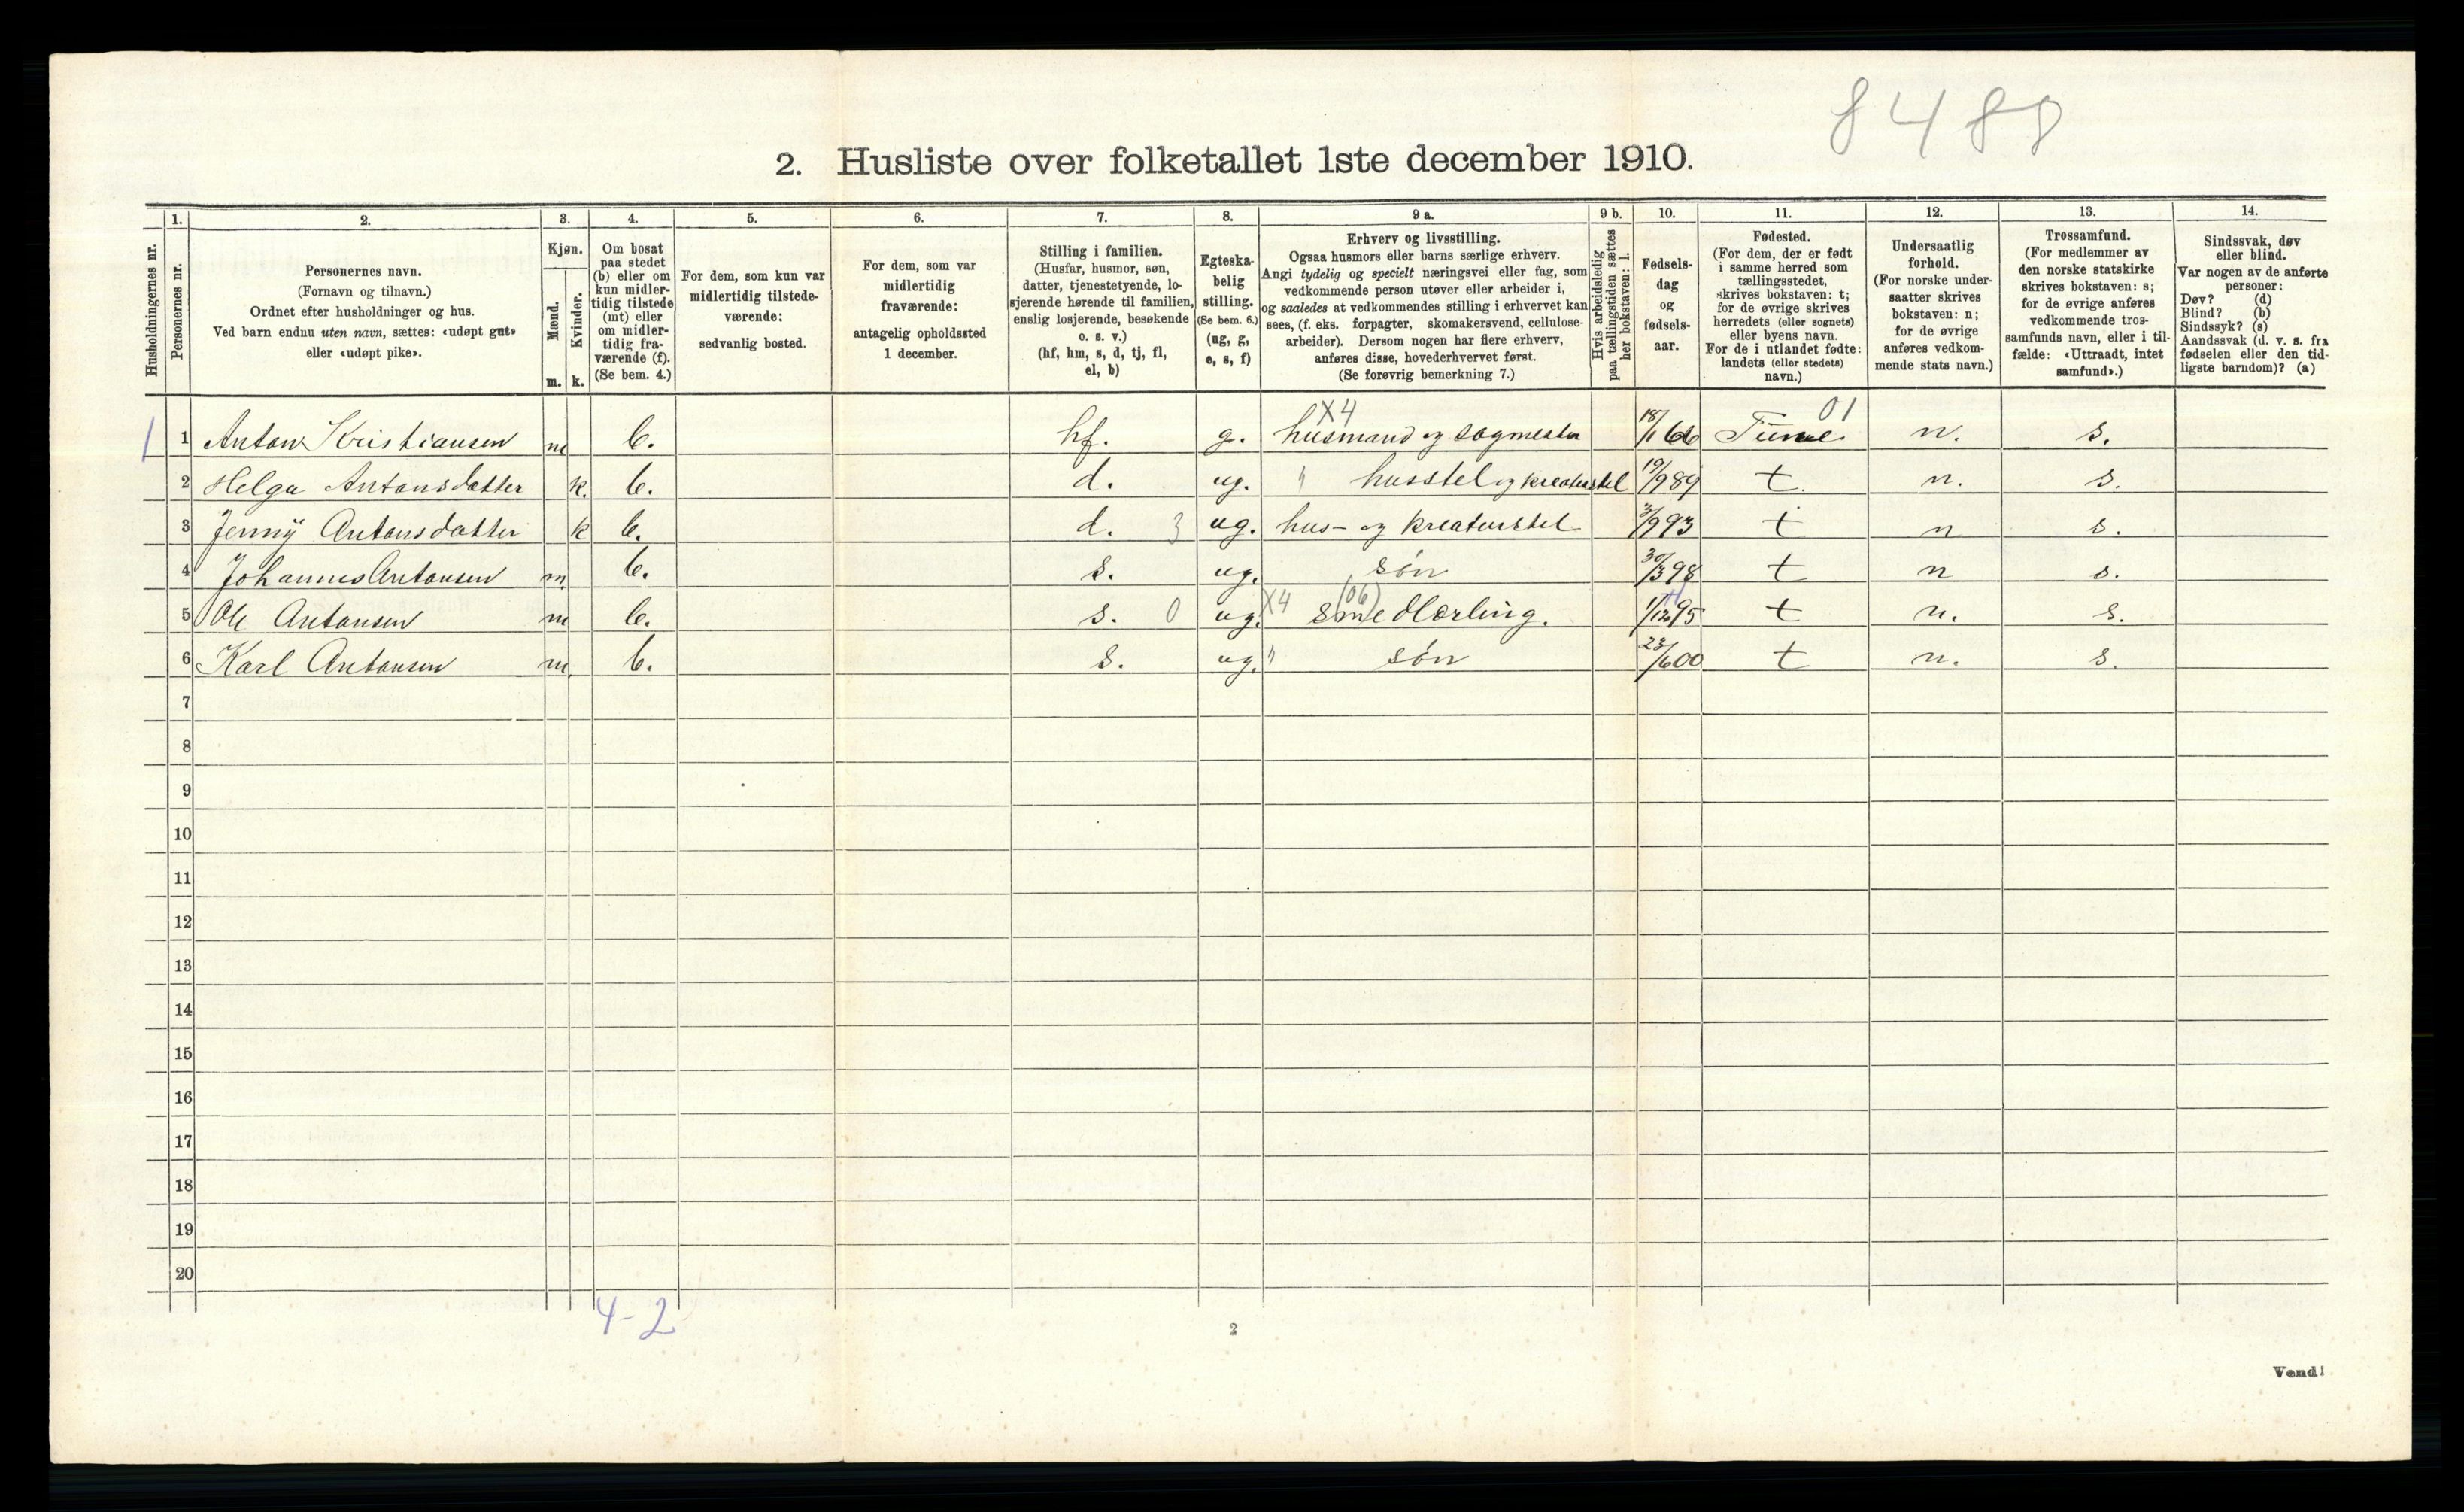 8488
2. Husliste over folketallet 1ste december 1910.
Husholdningernes nr.
1. Personernes nr.
2. Personernes navn. (Fornavn og tilnavn.) Ordnet efter husholdninger og hus. Ved barn endnu uten navn, sættes: «udøpt gut» eller «udøpt pike».
3. Kjøn. Mænd. m. Kvinder. k.
4. Om bosat paa stedet (b) eller om kun midlertidig tilstede (mt) eller om midlertidig fraværende (f). (Se bem. 4.)
5. For dem, som kun var midlertidig tilstedeværende: sedvanlig bosted.
6. For dem, som var midlertidig fraværende: antagelig opholdssted 1 december.
7. Stilling i familien. (Husfar, husmor, søn, datter, tjenestetyende, losjerende hørende til familien, enslig losjerende, besøkende o. s. v.) (hf, hm, s, d, tj, fl, el, b)
8. Egteskabelig stilling. (Se bem. 6.) (ug, g, e, s, f)
9 a. Erhverv og livsstilling. Ogsaa husmors eller barns særlige erhverv. Angi tydelig og specielt næringsvei eller fag, som vedkommende person utøver eller arbeider i, og saaledes at vedkommendes stilling i erhvervet kan sees, (f. eks. forpagter, skomakersvend, cellulosearbeider). Dersom nogen har flere erhverv, anføres disse, hovederhvervet først. (Se forøvrig bemerkning 7.)
9 b. Hvis arbeidsledig paa tællingstiden sættes her bokstaven: l.
10. Fødselsdag og fødselsaar.
11. Fødested. (For dem, der er født i samme herred som tællingsstedet, skrives bokstaven: t; for de øvrige skrives herredets (eller sognets) eller byens navn. For de i utlandet fødte: landets (eller stedets) navn.)
12. Undersaatlig forhold. (For norske undersaatter skrives bokstaven: n; for de øvrige anføres vedkommende stats navn.)
13. Trossamfund. (For medlemmer av den norske statskirke skrives bokstaven: s; for de øvrige anføres vedkommende trossamfunds navn, eller i tilfælde: «Uttraadt, intet samfund».)
14. Sindssvak, døv eller blind. Var nogen av de anførte personer: Døv? (d) Blind? (b) Sindssyk? (s) Aandssvak (d. v. s. fra fødselen eller den tidligste barndom)? (a)
X4 01
1 1 Anton Kristiansen m b. hf. g. husmand og sagmester 18/1 66 Tune n. s.
2 Helga Antonsdatter k. b. d. ug. " husstel og kreaturstel 19/9 89 t. n. s.
3 Jenny Antonsdatter k b. d. 3 ug. hus- og kreaturstel 3/9 93 t n s.
4 Johannes Antonsen m. b. s. ug. søn 30/3 98 t n s.
5 Ole Antonsen m b. s. 0 ug. X4 smedlærling. (06) 1/12 95 t n. s.
6 Karl Antonsen m. b. s. ug. " søn 23/6 00 t n. s.
7
8
9
10
11
12
13
14
15
16
17
18
19
20
4-2
2
Vend!